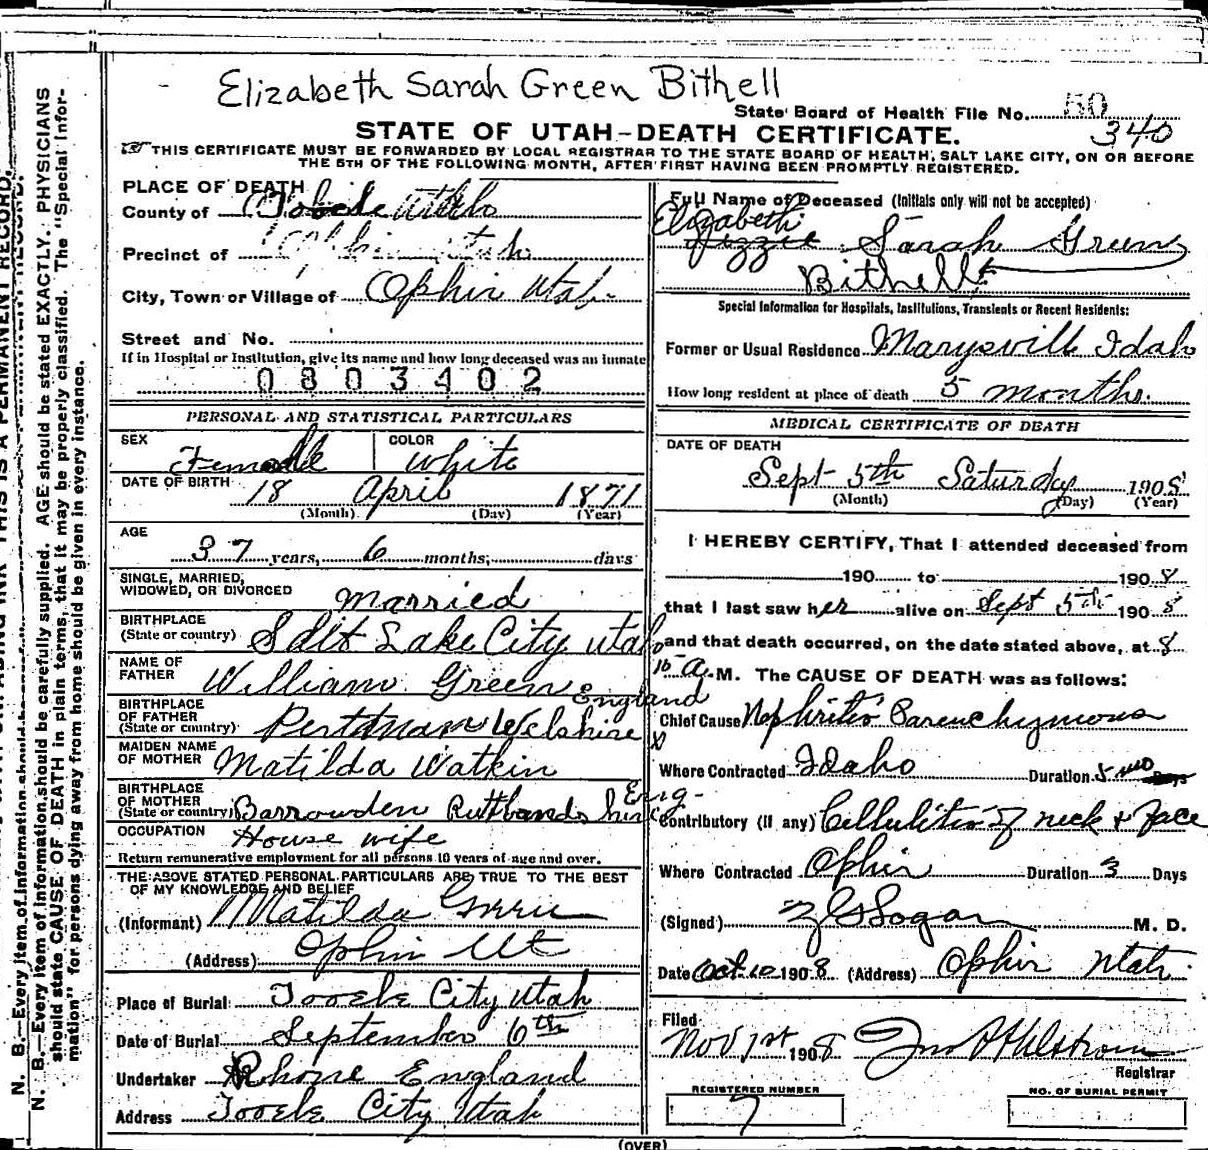 Elizabeth Sarah Green Bithell
State Board of Health File No. 50
340
STATE OF UTAH-DEATH CERTIFICATE.
THIS CERTIFICATE MUST BE FORWARDED BY LOCAL REGISTRAR TO THE STATE BOARD OF HEALTH, SALT LAKE CITY, ON OR BEFORE
THE 5TH OF THE FOLLOWING MONTH, AFTER FIRST HAVING BEEN PROMPTLY REGISTERED.
PLACE OF DEATH
County of Tooele Utah
Precinct of Ophir Utah
City, Town or Village of Ophir Utah
Street and No.
If in Hospital or Institution, give its name and how long deceased was an inmate
0803402
PERSONAL AND STATISTICAL PARTICULARS
SEX Female COLOR White
DATE OF BIRTH 18 April 1871
(Month) (Day) (Year)
AGE
37 years, 6 months, days
SINGLE, MARRIED,
WIDOWED, OR DIVORCED Married
BIRTHPLACE
(State or country) Salt Lake City Utah
NAME OF
FATHER William Green
BIRTHPLACE
OF FATHER
(State or country) England
MAIDEN NAME
OF MOTHER Matilda Watkin
BIRTHPLACE
OF MOTHER
(State or country) Barrowden Eng-
OCCUPATION House wife
Return remunerative employment for all persons 10 years of age and over.
THE ABOVE STATED PERSONAL PARTICULARS ARE TRUE TO THE BEST
OF MY KNOWLEDGE AND BELIEF
(Informant) Matilda Green
(Address) Ophir Ut
Place of Burial Tooele City Utah
Date of Burial September 6th
Undertaker Rhone England
Address Tooele City Utah
Full Name of Deceased (Initials only will not be accepted)
Elizabeth
Lizzie Sarah Green
Bithell
Special Information for Hospitals, Institutions, Transients or Recent Residents:
Former or Usual Residence Marysville Idaho
How long resident at place of death 5 months.
MEDICAL CERTIFICATE OF DEATH
DATE OF DEATH
Sept 5th Saturday 1908
(Month) (Day) (Year)
I HEREBY CERTIFY, That I attended deceased from
190 to 1908
that I last saw her alive on Sept 5th 1908
and that death occurred, on the date stated above, at 8
10 A.M. The CAUSE OF DEATH was as follows:
Chief Cause Nephritis Parenchymous
Where Contracted Idaho Duration 5 mo Days
Contributory (if any) Cellulitis of neck & face
Where Contracted Ophir Duration 3 Days
(Signed) M. D.
Date Oct. 10 1908 (Address) Ophir Utah
Filed
Nov 1st 1908 Jno A Ahlstrom
Registrar
REGISTERED NUMBER
7
NO. OF BURIAL PERMIT
(OVER)
N. B.—Every item of information should be carefully supplied. AGE should be stated EXACTLY. PHYSICIANS
should state CAUSE OF DEATH in plain terms, that it may be properly classified. The "Special Infor-
mation" for persons dying away from home should be given in every instance.
THIS IS A PERMANENT RECORD.